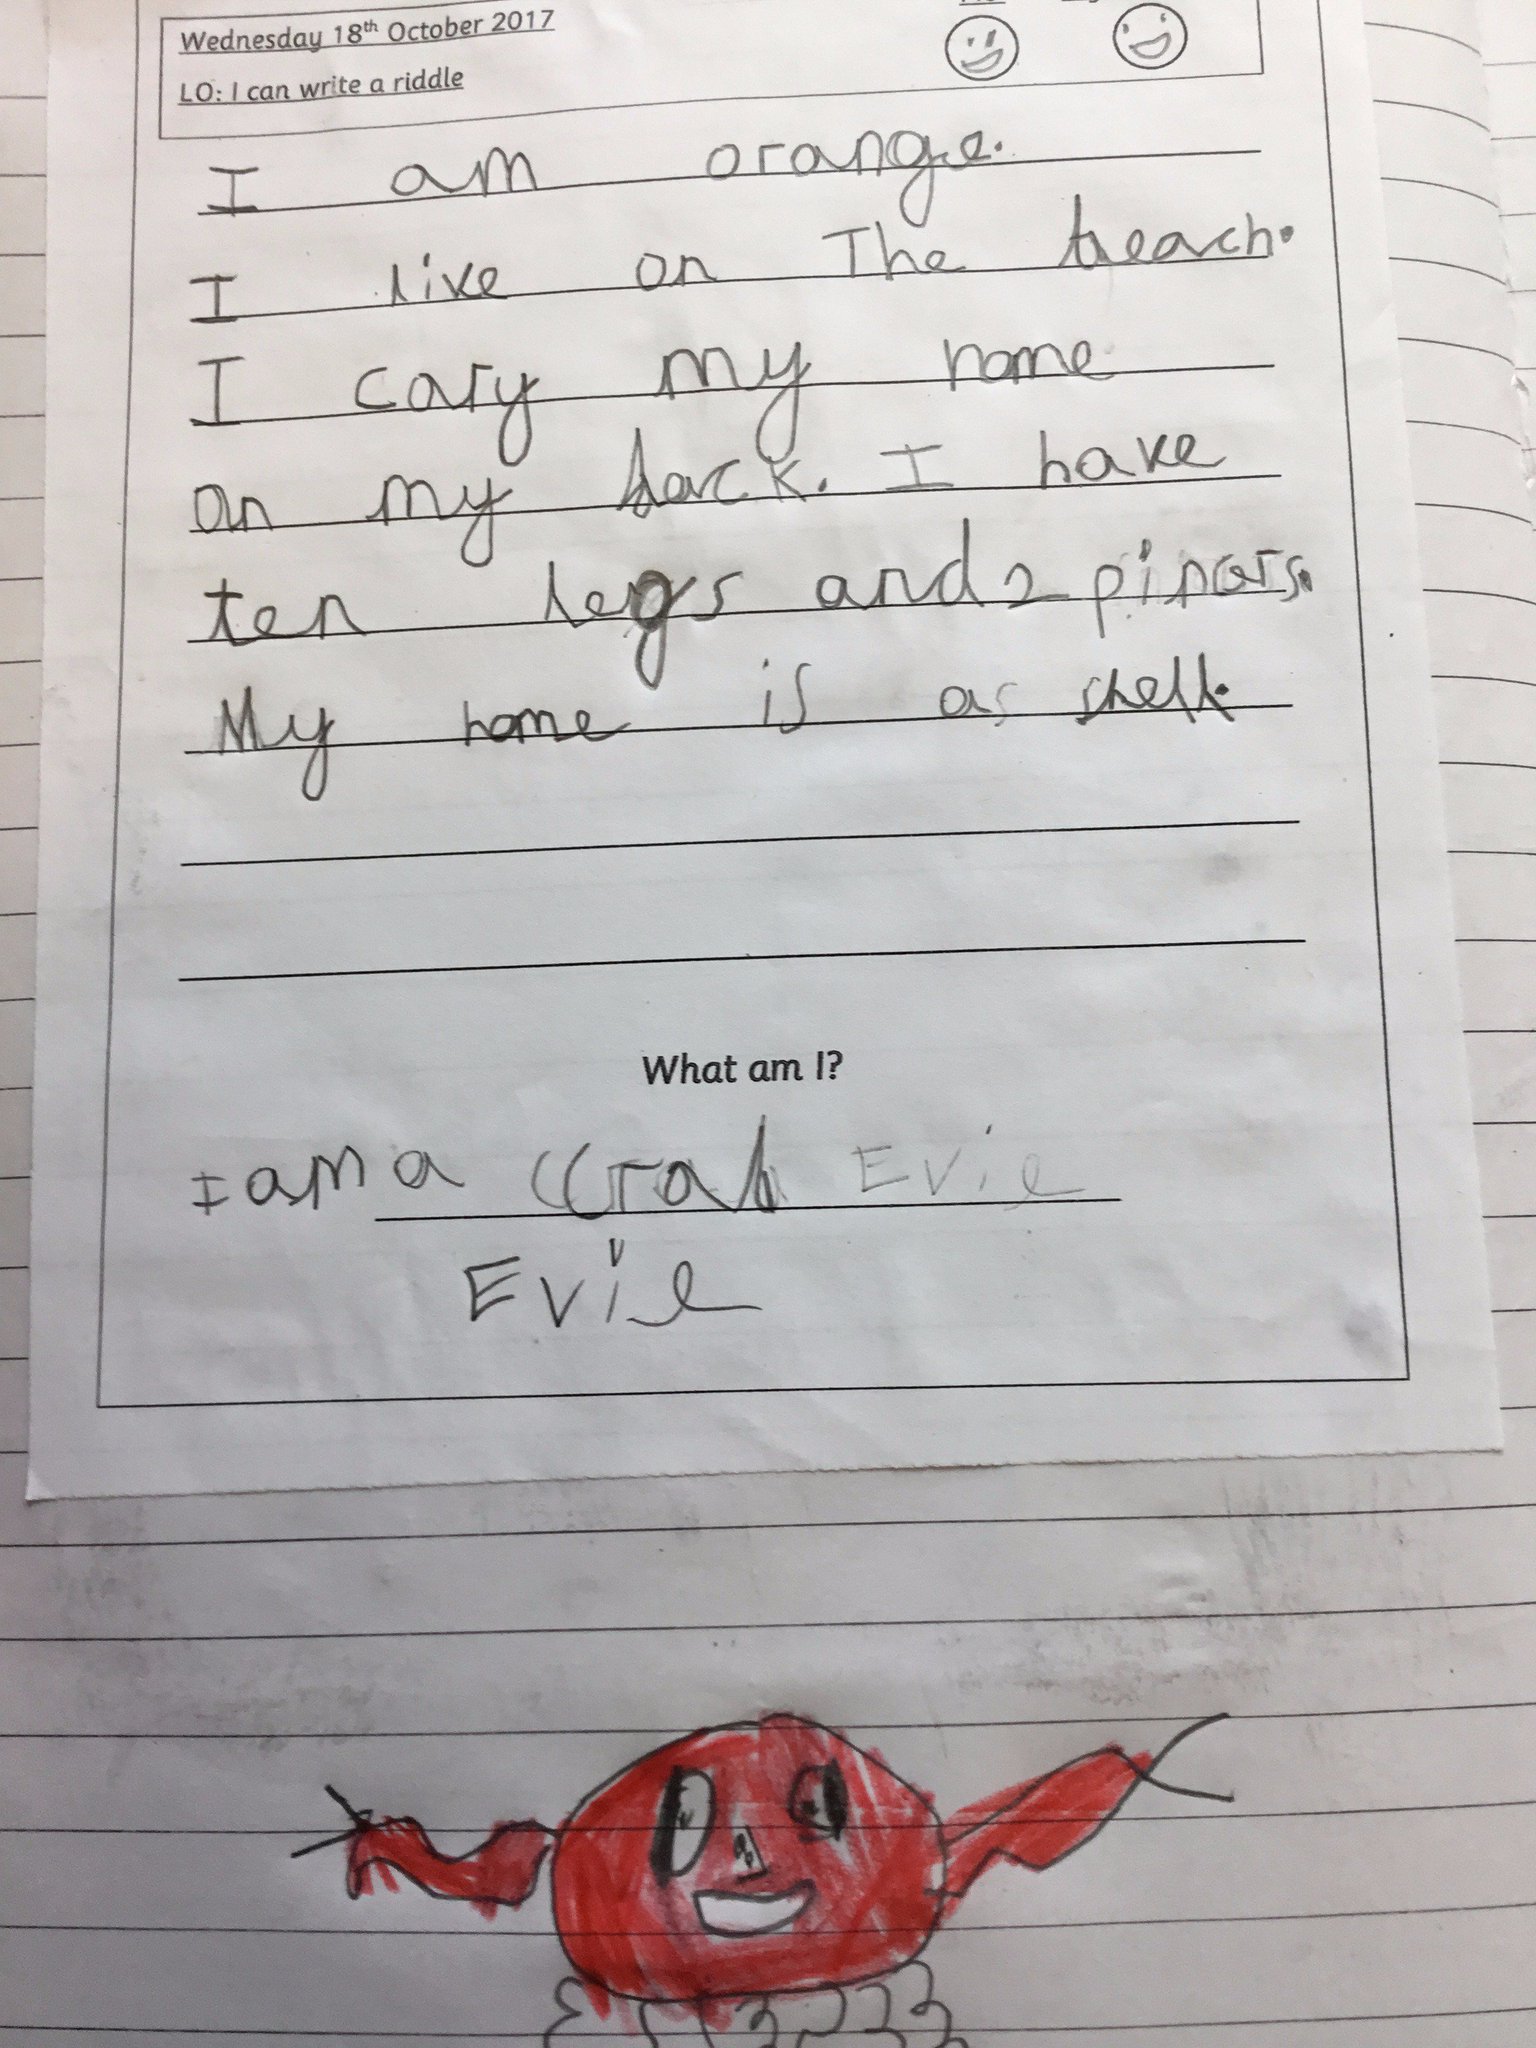 Wednesday 18th October 2017
LO: I can write a riddle
I am orange.
I live on The beach.
I cary my home
on my back. I have
ten legs and 2 pincers.
My home is as shell.
What am I?
I am a Crab Evie
Evie